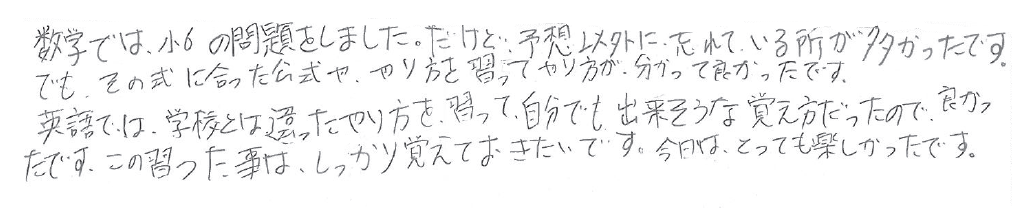 数学では、小6の問題をしました。だけど、予想以外に、忘れて、いる所が多かったです。
でも、その式に合った公式や、やり方を習ってやり方が、分かって良かったです。
英語では、学校とは違ったやり方を、習って、自分でも出来そうな覚え方だったので、良かっ
たです。この習った事は、しっかり覚えておきたいです。今日は、とっても楽しかったです。